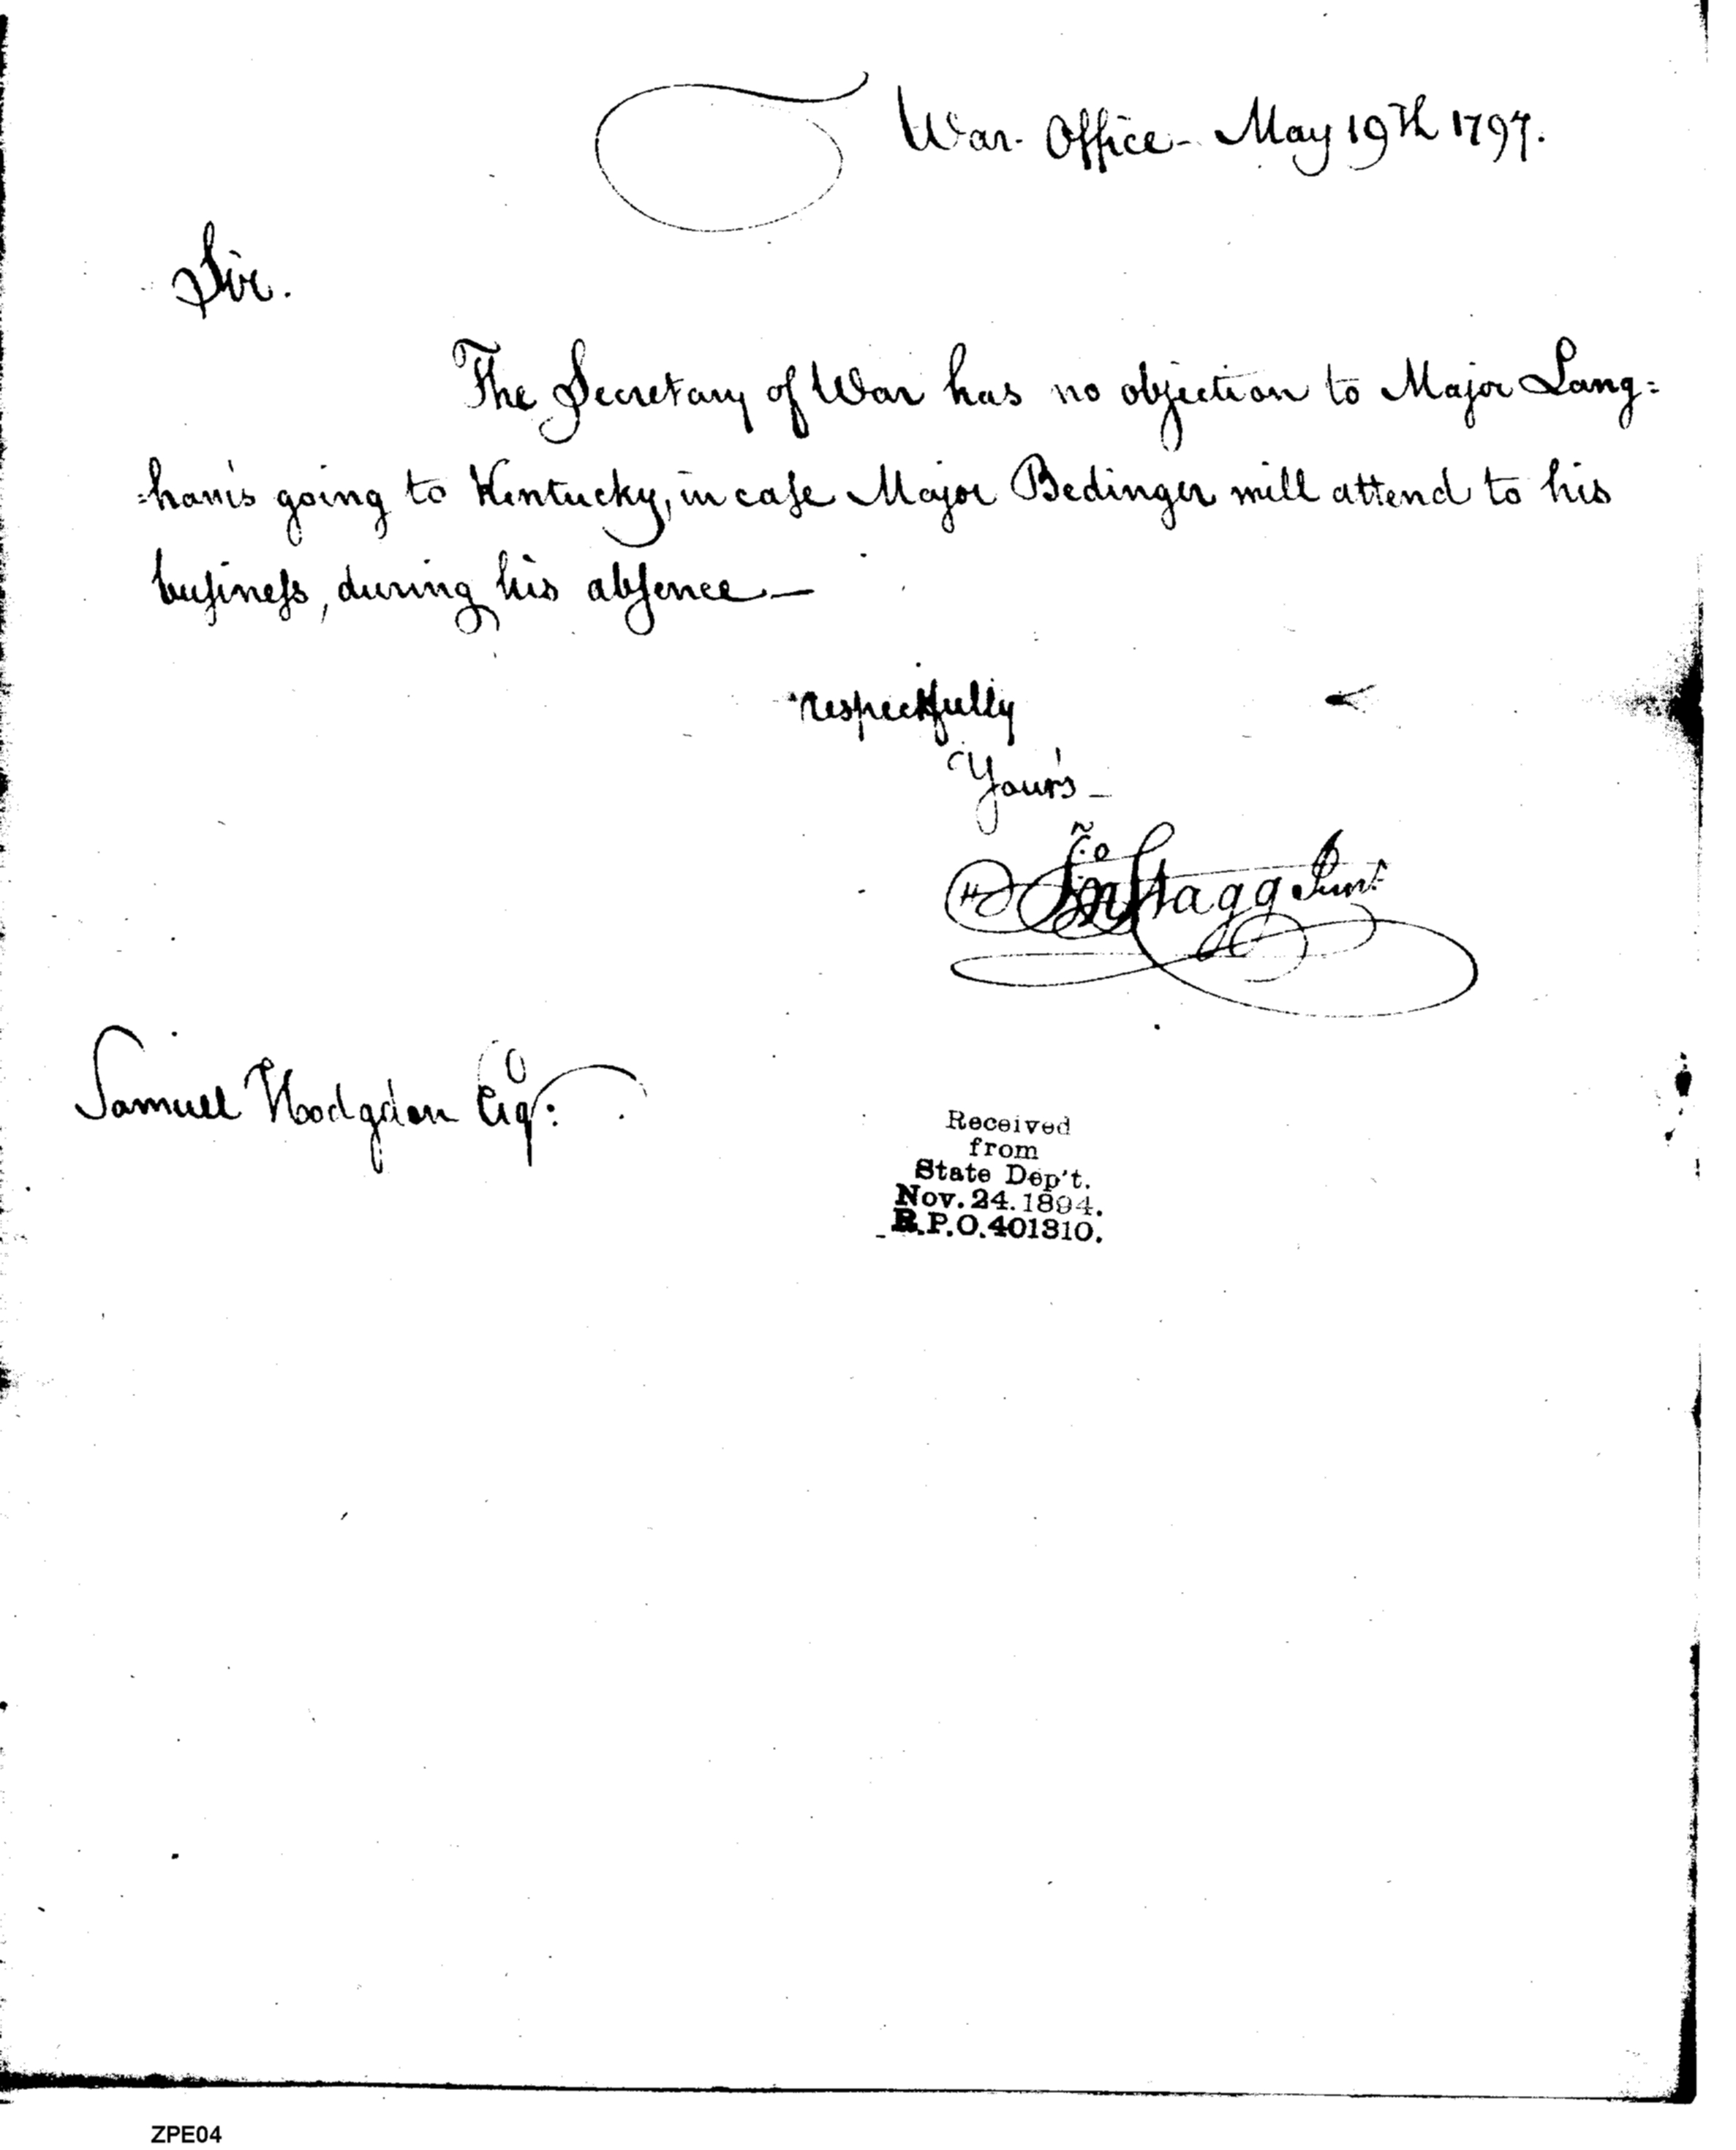 War Office - May 19th 1797.
Sir.
The Secretary of War has no objection to Major Lang=
=ham's going to Kentucky, in case Major Bedinger will attend to his
business, during his absence —
respectfully
Your's —
Jno Stagg Junr.
Samuel Hodgdon Esqr:
Received
from
State Dep't.
Nov. 24. 1894.
R.P.O. 401310.
ZPE04